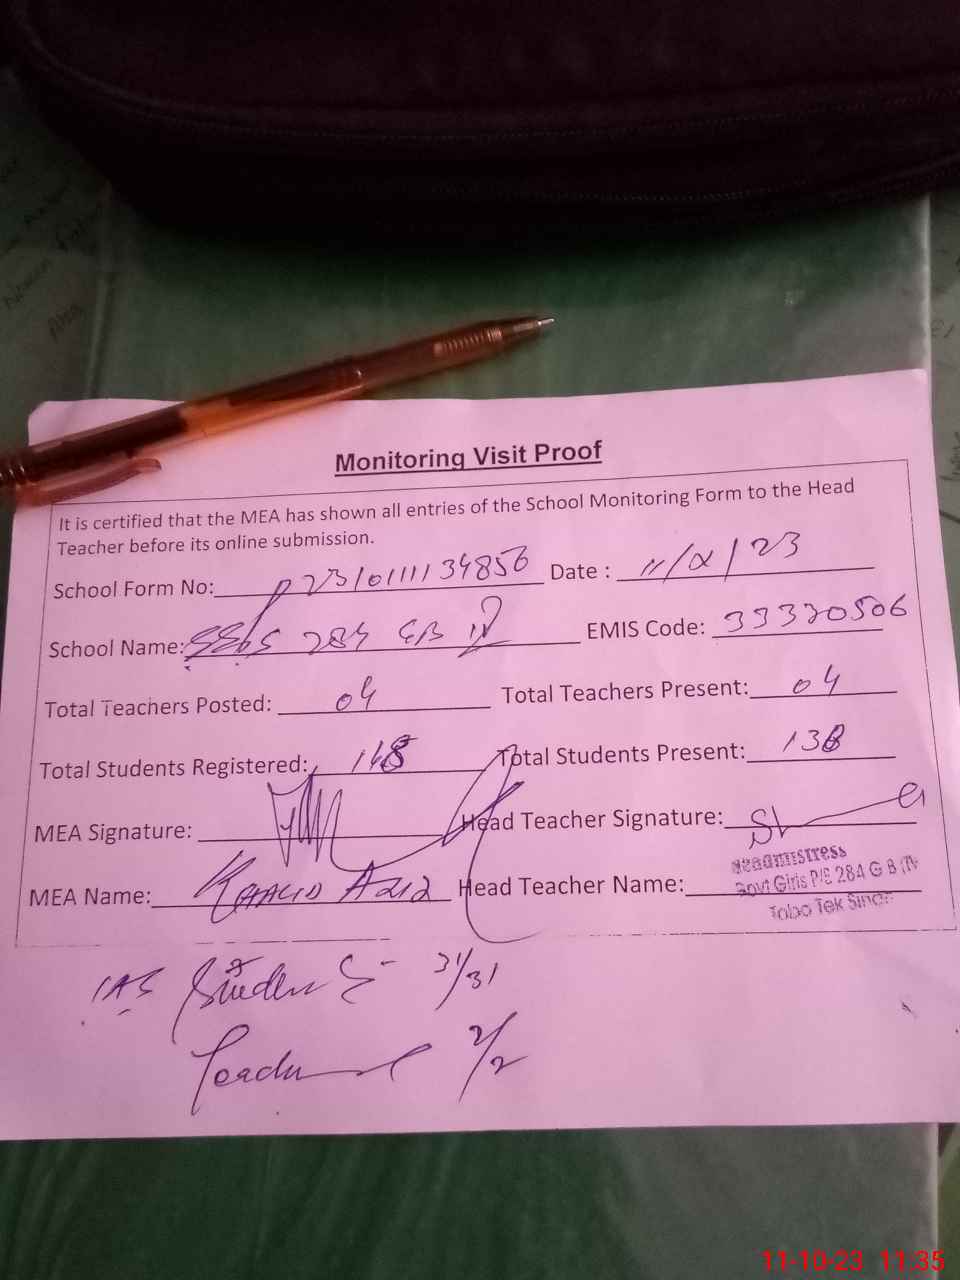 Monitoring Visit Proof
It is certified that the MEA has shown all entries of the School Monitoring Form to the Head
Teacher before its online submission.
School Form No: Date : 11/ /23
School Name: 284 GB EMIS Code: 33320506
Total Teachers Posted: 04 Total Teachers Present: 04
Total Students Registered: 148 Total Students Present: 138
MEA Signature: Head Teacher Signature:
MEA Name: KHALID AZIZ Head Teacher Name:
Headmistress
Govt Girls P/S 284 G B
Toba Tek Singh
Students 31/31
Teacher 2/2
11-10-23 11:35